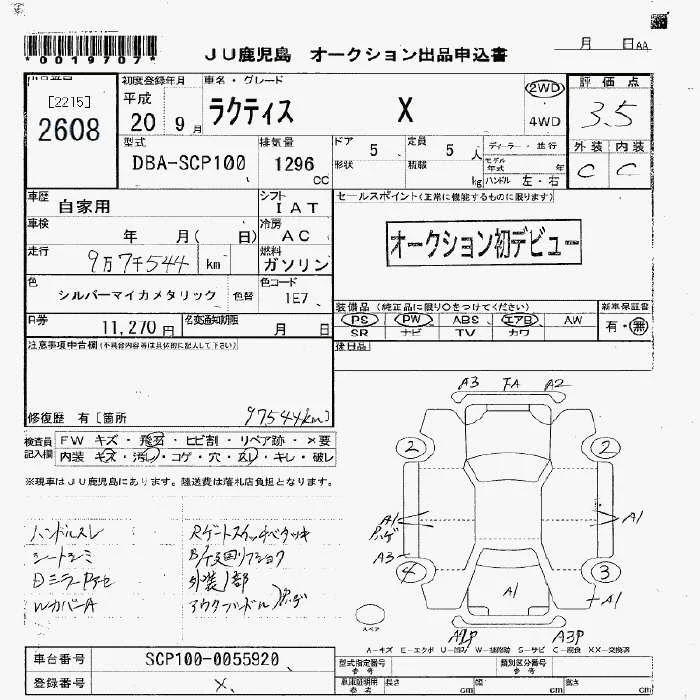 *0019707*
JU鹿児島 オークション出品申込書
月 日AA
[2215]
2608
初度登録年月
平成
20 9月
車名・グレード
ラクティス X
2WD
4WD
評価点
3.5
外装 内装
C C
型式
DBA-SCP100
排気量
1296
CC
ドア 5
形状
定員 5人
積載 kg
ディーラー・並行
モデル年式 年
ハンドル 左・右
車歴
自家用
シフト
IAT
車検
年 月( 日)
冷房
AC
走行
9万7千544 km
燃料
ガソリン
色
シルバーマイカメタリック 色替
色コード
1E7
R券
11,270円
名変通知期限
月 日
セールスポイント(正常に機能するものに限ります)
オークション初デビュー
装備品(純正品に限り○をつけてください)
PS PW ABS エアB AW
SR ナビ TV カワ
新車保証書
有・無
後日品
注意事項申告欄(不具合内容等は具体的に記入して下さい)
97544km]
修復歴 有[箇所
検査員記入欄
FW キズ・飛石・ヒビ割・リペア跡・×要
内装 キズ・汚レ・コゲ・穴・スレ・キレ・破レ
※現車はJU鹿児島にあります。陸送費は落札店負担となります。
ハンドルスレ
シートシミ
WカバーA
外装1部
A3 A2
2 2
A1 A1
ハゲ
A3
4 3
A1
A1
スペア
A-キズ E-エクボ U-凹ミ W-補修跡 S-サビ C-腐食 XX-交換済
車台番号
SCP100-0055920
登録番号
X
型式指定番号
類別区分番号
車庫証明用参考
長さ cm
幅 cm
高さ cm